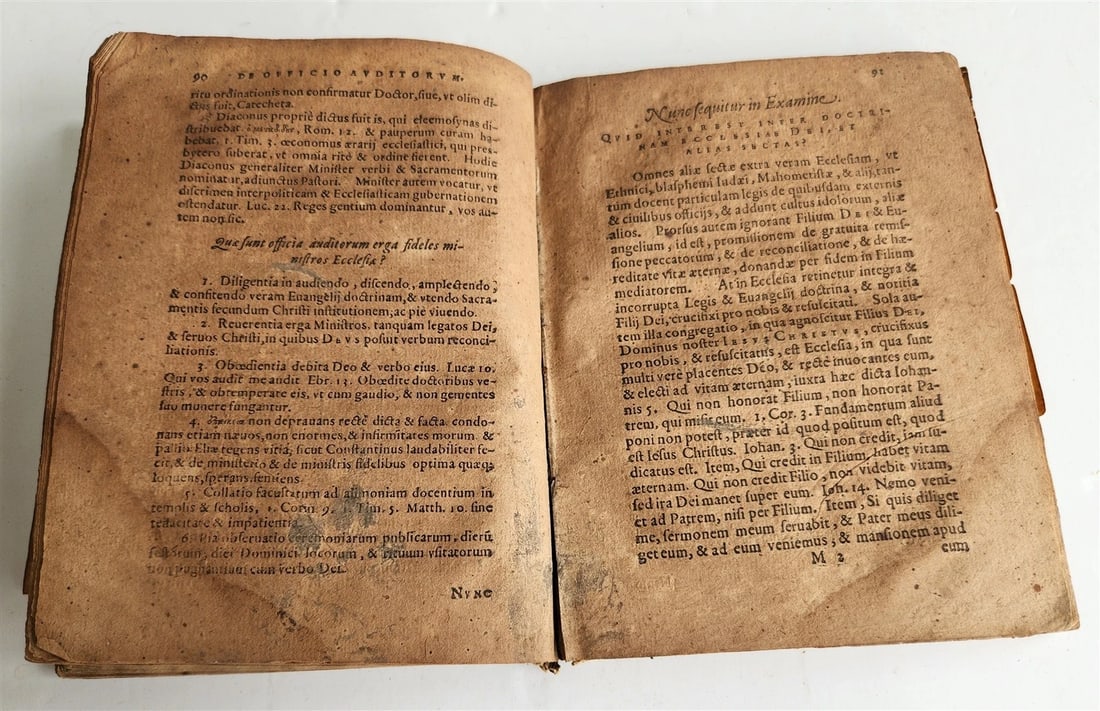 90 DE OFFICIO AVDITORVM.
ritu ordinationis non confirmatur Doctor, siue, vt olim di-
ctus fuit, Catecheta.
Diaconus propriè dictus fuit is, qui eleemosynas di-
stribuebat. Rom. 12. & pauperum curam ha-
bebat, 1. Tim. 3. œconomus ærarij ecclesiastici, qui pres-
bytero suberat, vt omnia ritè & ordine fierent. Hodie
Diaconus generaliter Minister verbi & Sacramentorum
nominatur, adiunctus Pastori. Minister autem vocatur, vt
discrimen inter politicam & Ecclesiasticam gubernationem
ostendatur. Luc. 22. Reges gentium dominantur, vos au-
tem non sic.
Quæ sunt officia auditorum erga fideles mi-
nistros Ecclesiæ?
1. Diligentia in audiendo, discendo, amplectendo,
& confitendo veram Euangelij doctrinam, & vtendo Sacra-
mentis secundum Christi institutionem, ac piè viuendo.
2. Reuerentia erga Ministros, tanquam legatos Dei,
& seruos Christi, in quibus DEVS posuit verbum reconci-
liationis.
3. Obœdientia debita Deo & verbo eius. Lucæ 10.
Qui vos audit me audit. Ebr. 13. Obœdite doctoribus ve-
stris, & obtemperate eis, vt cum gaudio, & non gementes
suo munere fungantur.
4. non deprauans rectè dicta & facta, condo-
nans etiam næuos, non enormes, & infirmitates morum, &
pallio Eliæ tegens vitia, sicut Constantinus laudabiliter fe-
cit, & de ministerio & de ministris fidelibus optima quæq;
loquens, sperans, sentiens.
5. Collatio facultatum ad alimoniam docentium in
templis & scholis, 1. Corin. 9. 1. Tim. 5. Matth. 10. sine
tenacitate & impatientia.
6. Pia obseruatio ceremoniarum publicarum, dierū
festorum, diei Dominici locorum, & rituum vsitatorum
non pugnantium cum verbo Dei.
NVNC
91
Nunc sequitur in Examine.
QVID INTEREST INTER DOCTRI-
NAM ECCLESIAE DEI, ET
ALIAS SECTAS?
Omnes aliæ sectæ extra veram Ecclesiam, vt
Ethnici, blasphemi Iudæi, Mahometistæ, & alij, tan-
tum docent particulam legis de quibusdam externis
& ciuilibus officijs, & addunt cultus idolorum, aliæ
alios. Prorsus autem ignorant Filium DEI & Eu-
angelium, id est, promissionem de gratuita remis-
sione peccatorum, & de reconciliatione, & de hæ-
reditate vitæ æternæ, donandæ per fidem in Filium
mediatorem. At in Ecclesia retinetur integra &
incorrupta Legis & Euangelij doctrina, & notitia
Filij Dei, crucifixi pro nobis & resuscitati. Sola au-
tem illa congregatio, in qua agnoscitur Filius DEI,
Dominus noster IESVS CHRISTVS, crucifixus
pro nobis, & resuscitatus, est Ecclesia, in qua sunt
multi verè placentes Deo, & rectè inuocantes eum,
& electi ad vitam æternam, iuxta hæc dicta Iohan-
nis 5. Qui non honorat Filium, non honorat Pa-
trem, qui misit eum. 1. Cor. 3. Fundamentum aliud
poni non potest, præter id quod positum est, quod
est Iesus Christus. Iohan. 3. Qui non credit, iam iu-
dicatus est. Item, Qui credit in Filium, habet vitam
æternam. Qui non credit Filio, non videbit vitam,
sed ira Dei manet super eum. Ioh. 14. Nemo veni-
et ad Patrem, nisi per Filium. Item, Si quis diliget
me, sermonem meum seruabit, & Pater meus dili-
get eum, & ad eum veniemus, & mansionem apud
M 2 eum